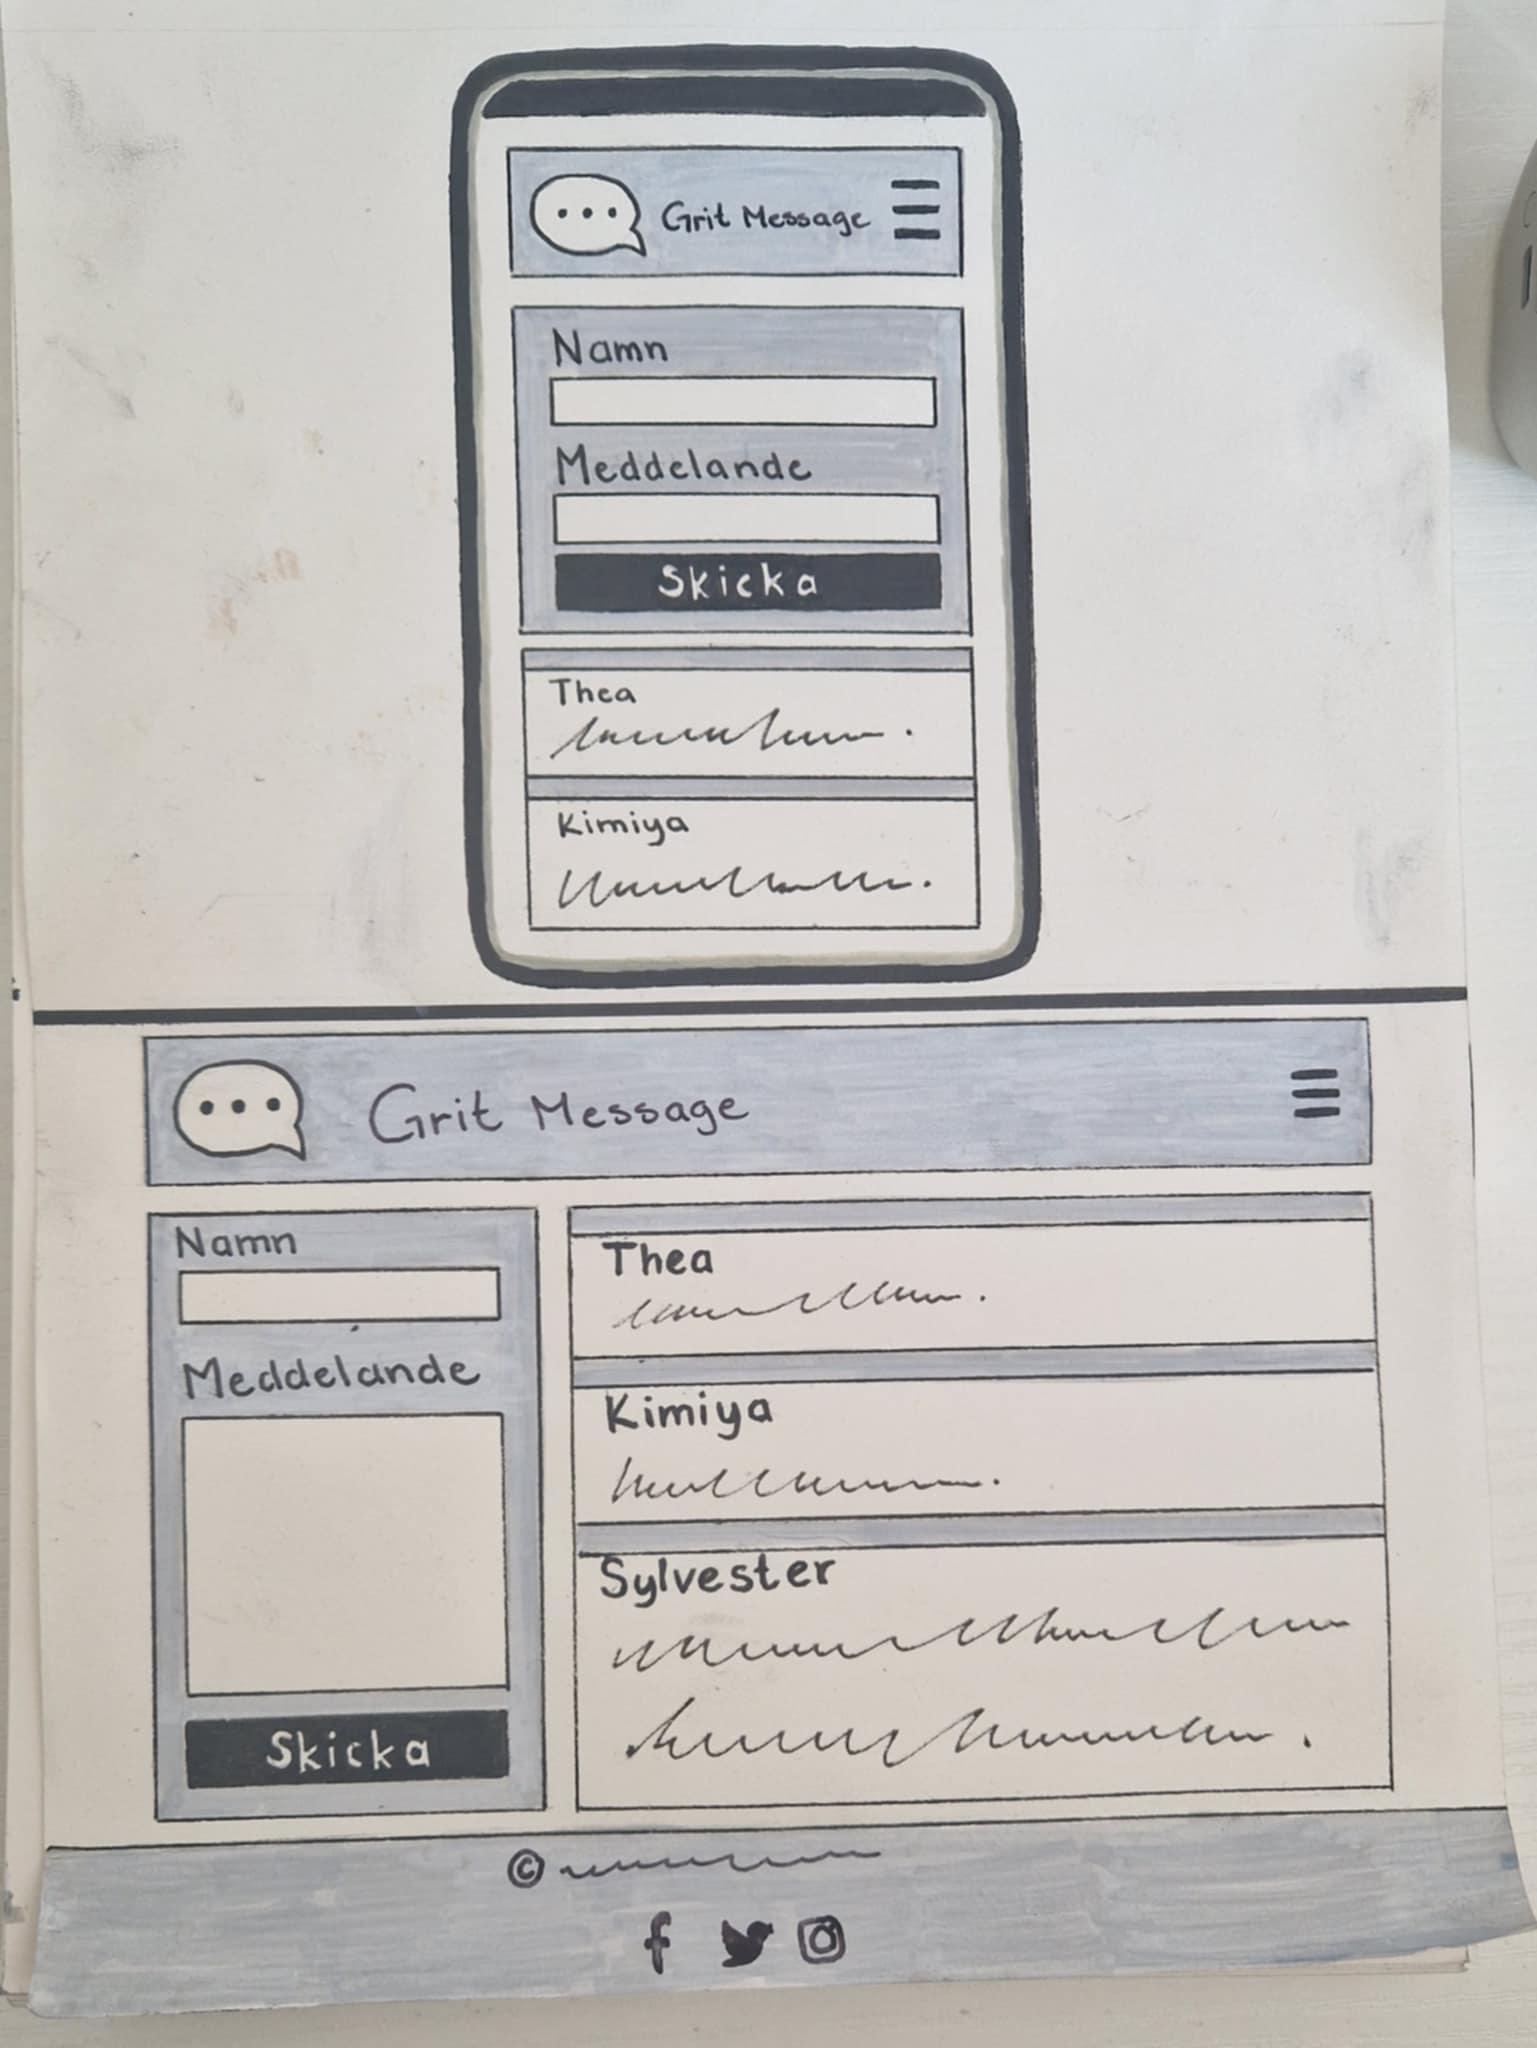 Grit Message
Namn
Meddelande
Skicka
Thea
Kimiya
Grit Message
Namn
Meddelande
Skicka
Thea
Kimiya
Sylvester
©